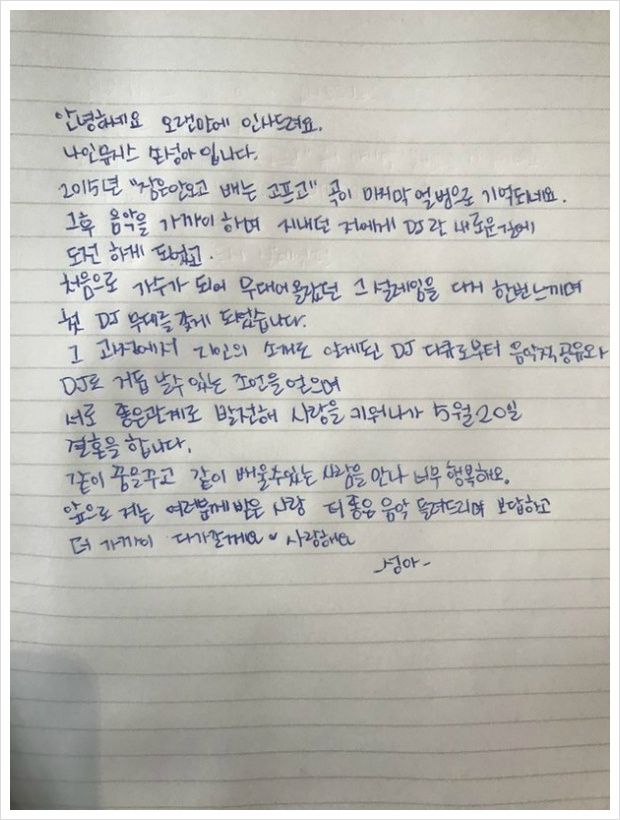 안녕하세요 오랜만에 인사드려요.
나인뮤지스 손성아입니다.
2015년 "잠은안오고 배는 고프고" 곡이 마지막 앨범으로 기억되네요.
그후 음악을 가까이 하며 지내던 저에게 DJ란 새로운길에
도전 하게 되었고.
처음으로 가수가 되어 무대에올랐던 그 설레임을 다시 한번느끼며
첫 DJ 무대를 갖게 되었습니다.
그 과정에서 지인의 소개로 알게된 DJ 다큐로부터 음악적공유와
DJ로 거듭 날수있는 조언을얻으며
서로 좋은관계로 발전해 사랑을 키워나가 5월20일
결혼을 합니다.
같이 꿈을꾸고 같이 배울수있는 사람을 만나 너무 행복해요.
앞으로 저는 여러분께받은 사랑 더 좋은 음악 들려드리며 보답하고
더 가까이 다가갈께요 ♥ 사랑해요
-성아-